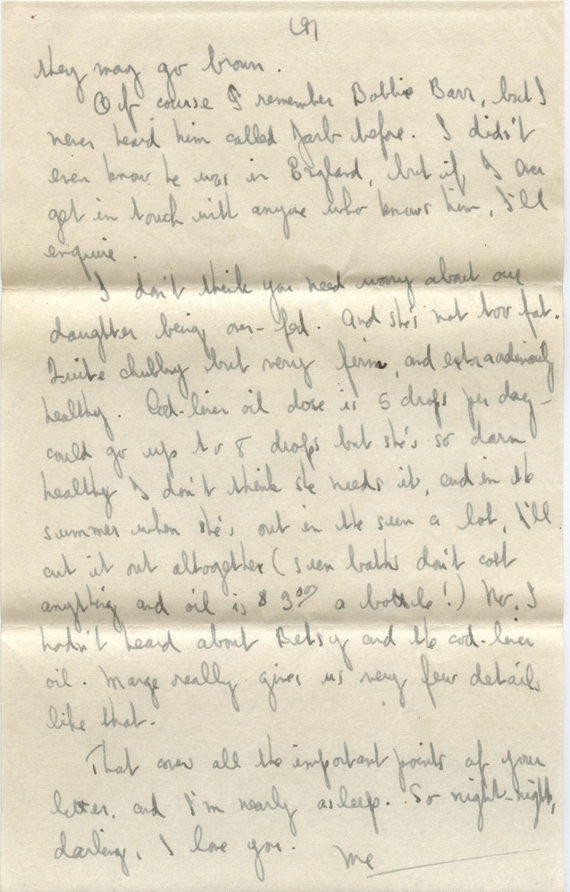 (9)
they may go brown.
Of course I remember Bobbie Barr, but I
never heard him called Jarb before. I didn't
even know he was in England, but if I ever
get in touch with anyone who knows him, I'll
enquire.
I don't think you need worry about our
daughter being over-fed. And she's not too fat.
Quite chubby but very firm, and extraordinarily
healthy. Cod-liver oil dose is 5 drops per day -
could go up to 8 drops but she's so darn
healthy I don't think she needs it, and in the
summer when she's out in the sun a lot, I'll
cut it out altogether (sun baths don't cost
anything and oil is $3.00 a bottle!) No, I
hadn't heard about Betsy and the cod-liver
oil. Marge really gives us very few details
like that.
That covers all the important points of your
letter, and I'm nearly asleep. So night-night,
darling, I love you.
Me